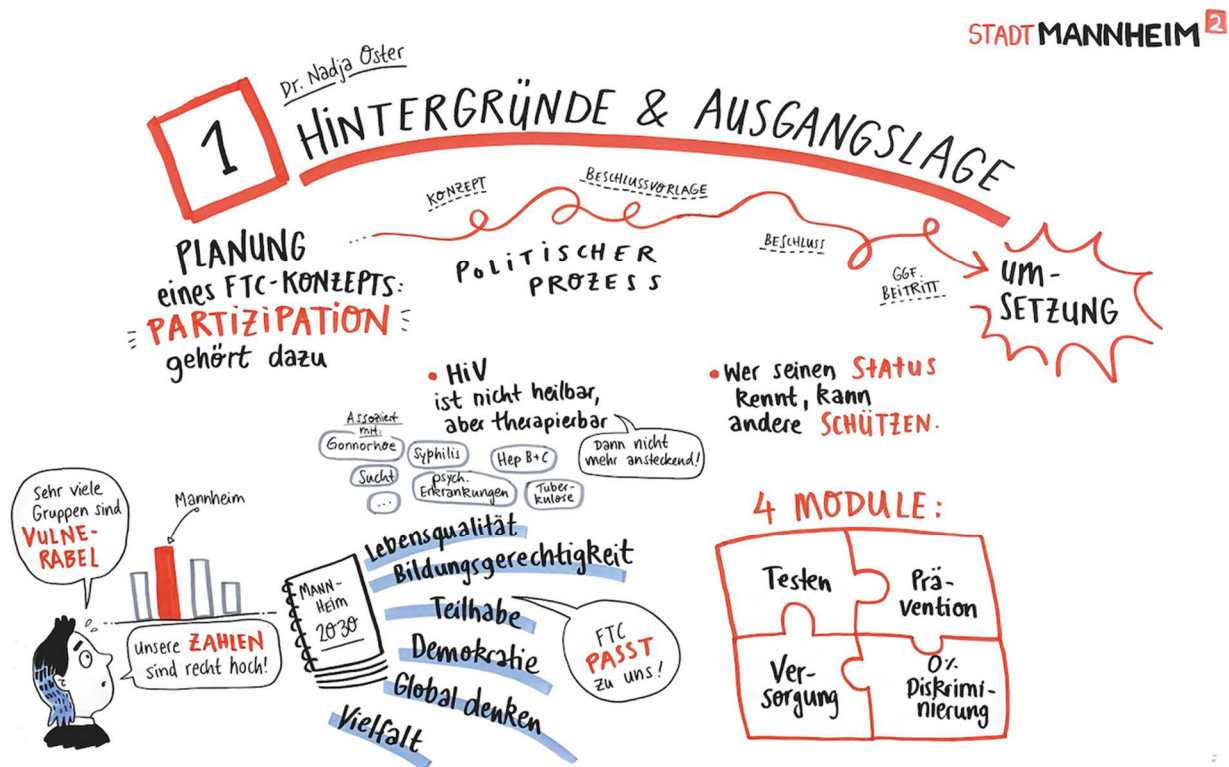 STADT MANNHEIM 2
Dr. Nadja Oster
1
HINTERGRÜNDE & AUSGANGSLAGE
PLANUNG
eines FTC-KONZEPTS:
PARTIZIPATION
gehört dazu
KONZEPT
BESCHLUSSVORLAGE
POLITISCHER
PROZESS
BESCHLUSS
GGF.
BEITRITT
UM-
SETZUNG
• HIV
ist nicht heilbar,
aber therapierbar
Dann nicht
mehr ansteckend!
Assoziiert
mit:
Gonnorhoe
Syphilis
Hep B+C
Sucht
psych.
Erkrankungen
Tuber-
kulose
...
• Wer seinen STATUS
kennt, kann
andere SCHÜTZEN.
Sehr viele
Gruppen sind
VULNE-
RABEL
Mannheim
unsere ZAHLEN
sind recht hoch!
MANN-
HEIM
2030
Lebensqualität
Bildungsgerechtigkeit
Teilhabe
Demokratie
Global denken
Vielfalt
FTC
PASST
zu uns!
4 MODULE:
Testen
Prä-
vention
Ver-
sorgung
0%
Diskrimi-
nierung